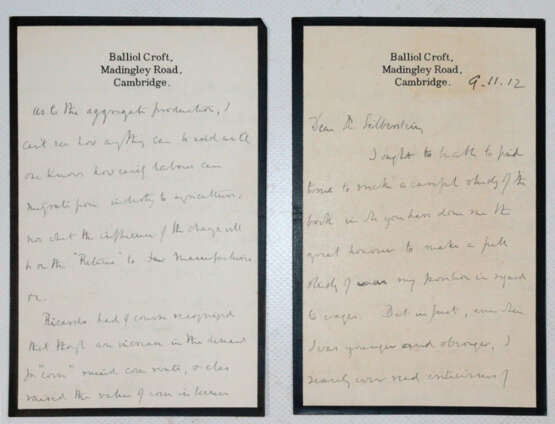 Balliol Croft,
Madingley Road,
Cambridge.
As to the aggregate production, I
can't see how anything can be said until
one knows how easily labour can
migrate from industry to agriculture,
nor what the influence of the change will
be on the "Returns" to the manufactures
on.
Ricardo had of course recognized
that though an increase in the demand
for "corn" raised corn rents, & also
raised the value of corn in terms
Balliol Croft,
Madingley Road,
Cambridge.
9.11.12
Dear Dr Silberstein
I ought to be able to find
time to make a careful study of the
book in wh you have done me the
great honour to make a full
study of my position in regard
to wages. But in fact, even when
I was younger and stronger, I
scarcely ever read criticisms of